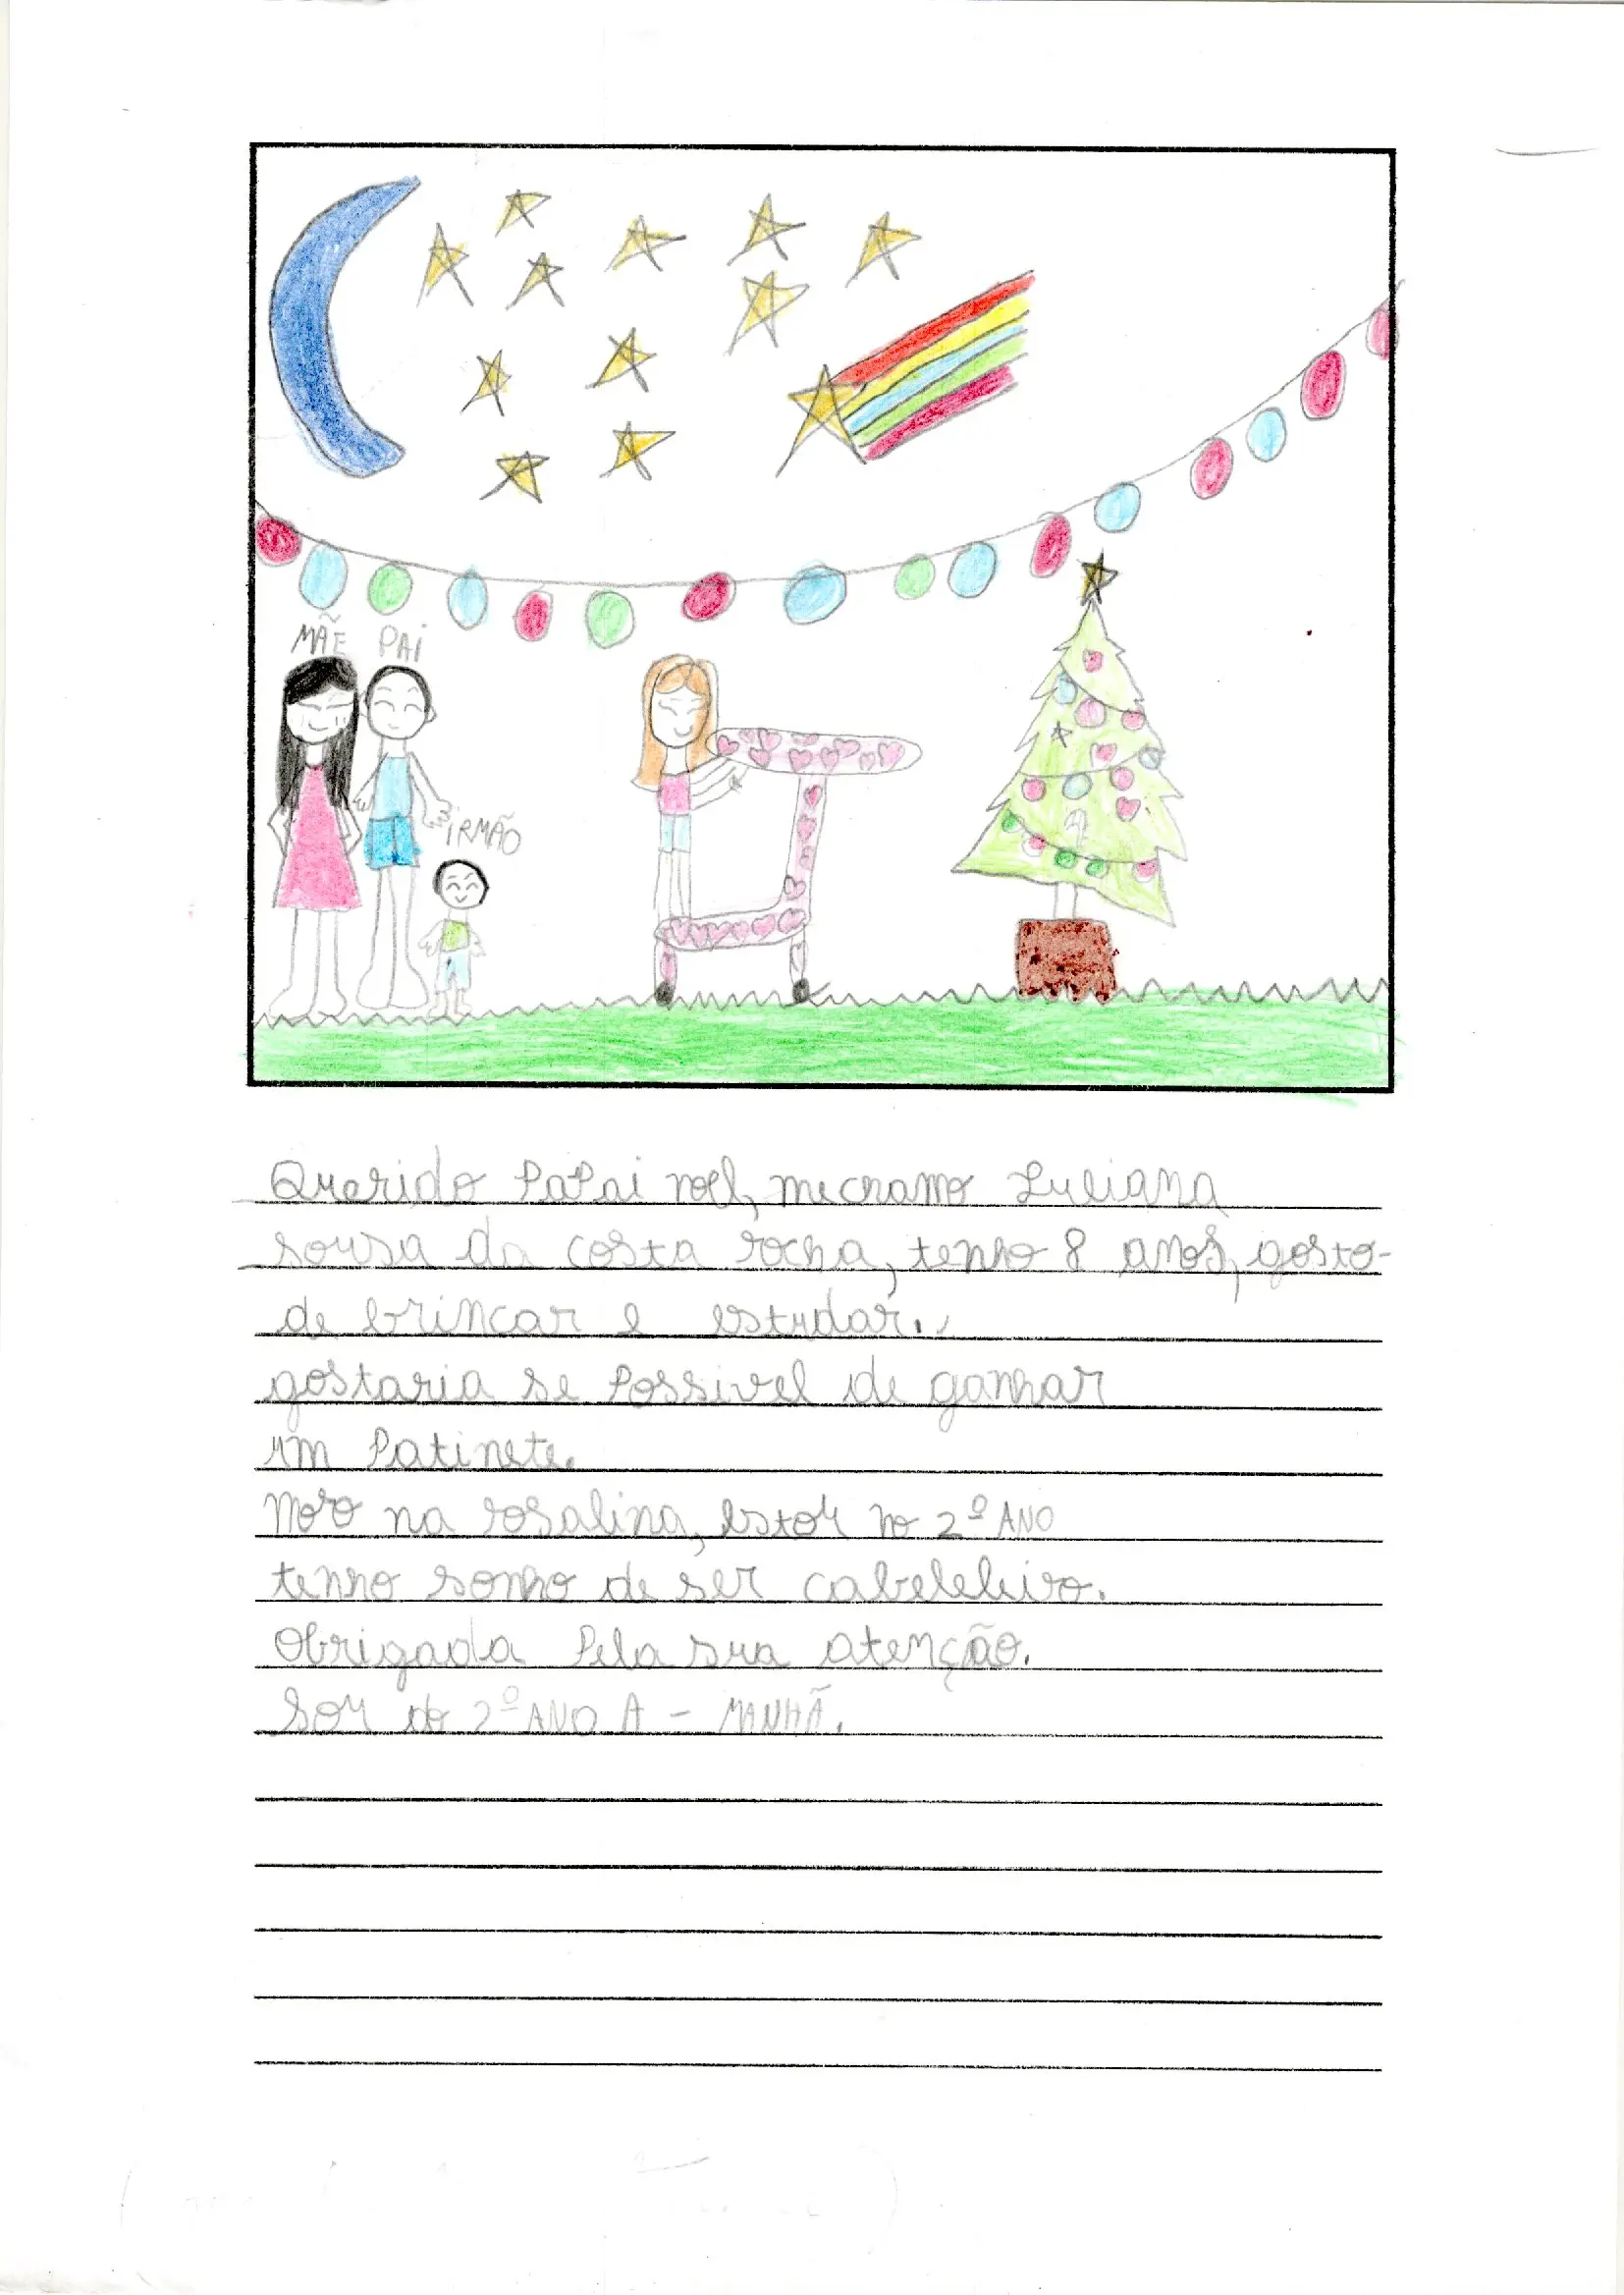 MÃE PAI
IRMÃO
Querido PaPai noel, mechamo Luciana
sousa da costa rocha, tenho 8 anos, gosto-
de brincar e estudar.
gostaria se Possivel de ganhar
um Patinete.
Moro na rosalina, estou no 2º ANO
tenho sonho de ser cabeleleiro.
Obrigada Pela sua atenção.
Sou do 2º ANO A - MANHÃ.